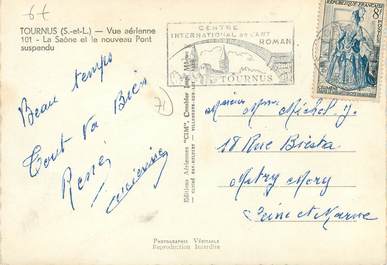 67
TOURNUS (S.-et-L.) — Vue aérienne
101 - La Saône et le nouveau Pont
suspendu
CENTRE
INTERNATIONAL DE L'ART
ROMAN
TOURNUS
RÉPUBLIQUE FRANÇAISE
8F
71
Beau temps
Tout va Bien
René
Lucienne
Editions Aériennes "CIM", Combier Imp. Mâcon
Monsieur Mme Michel J.
18 Rue Biesta
Mitry Mory
Seine et Marne
Photographie Véritable
Reproduction Interdite